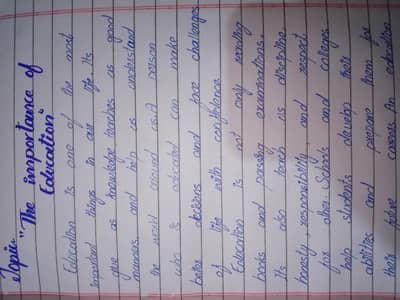 Topic
"The importance of
Education"
Education is one of the most
important things in our life. Its
give as knowledge teaches as good
manners and help as understand
the world around as. A person
who is educated can make
better decisions and face challenges
of life with confidence.
Education is not only reading
books and passing examinations.
Its also teach as discipline,
honesty, responsibility, and respect
for other. Schools and colleges
help students develop their
abilities and prepare them for
their future careers. An education